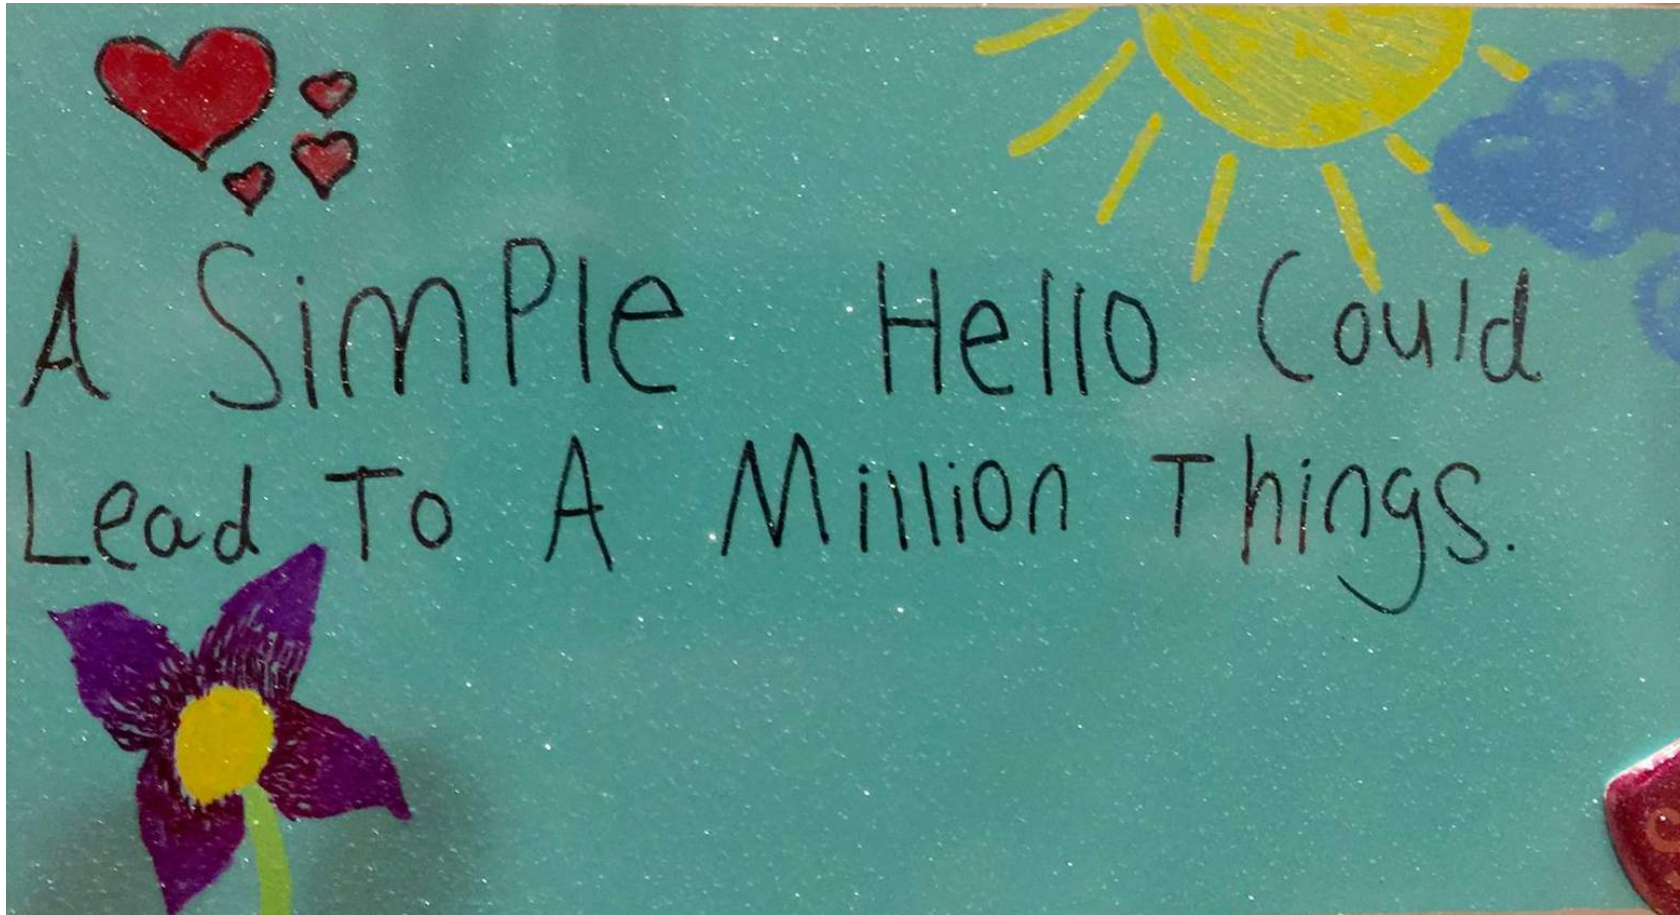 A Simple Hello Could
Lead To A Million Things.